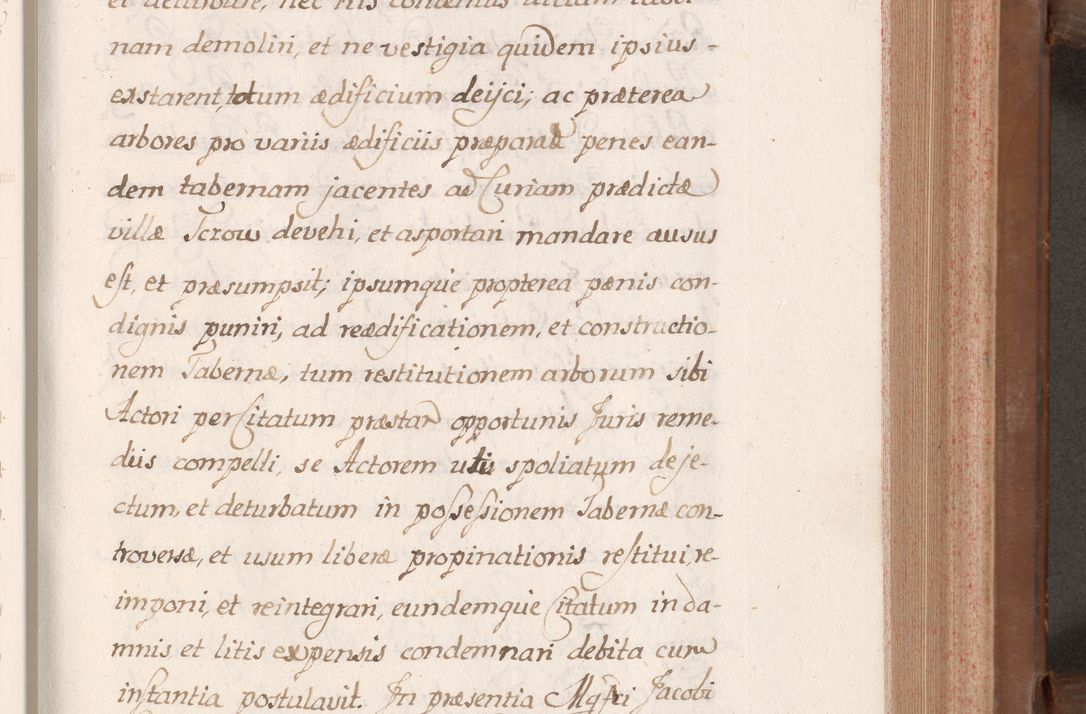 et deturbare, nec his contentus
nam demoliri, et ne vestigia quidem ipsius-
exstarent, totum ædificium deijci, ac præterea
arbores pro variis ædificiis præparatæ penes ean-
dem tabernam jacentes ad Curiam prædictæ
villæ Tczow devehi, et asportari mandare ausus
est, et præsumpsit; ipsumque propterea pœnis con-
dignis puniri, ad reædificationem, et constructio-
nem Tabernæ, tum restitutionem arborum sibi
Actori per Citatum præstand opportunis Juris reme-
diis compelli, se Actorem uti spoliatum deje-
ctum, et deturbatum in possessionem Tabernæ con-
troversæ, et usum liberæ propinationis restitui, re-
imponi, et reintegrari, eundemque Citatum in da-
mnis et litis expensis condemnari debita cum
instantia postulavit. In præsentia Mgfri Jacobi